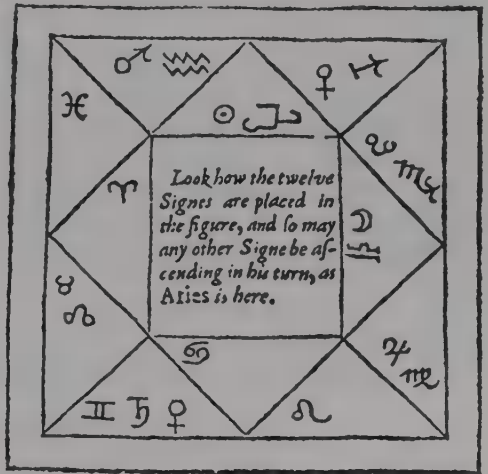 Look how the twelve
Signes are placed in
the figure, and ſo may
any other Signe be aſ-
cending in his turn, as
Aries is here.